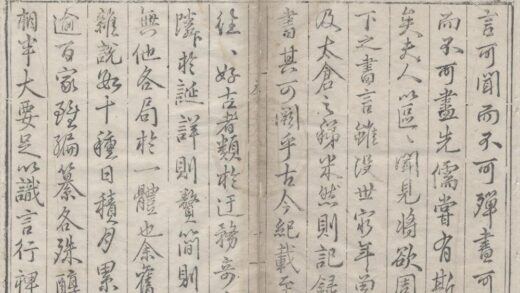 言可聞而不可殫書可
而不可盡先儒嘗有斯
矣夫人以區〻聞見將欲周
下之書言雖没世窮年尚
及太倉之稊米然則記録
書其可闕乎古今紀載至
往〻好古者類於迂務奇
隣於誕詳則贅簡則
無他各局於一體也余舊
雜説數十種日積月累
逾百家雖編纂各殊醇
相半大要足以識言行裨